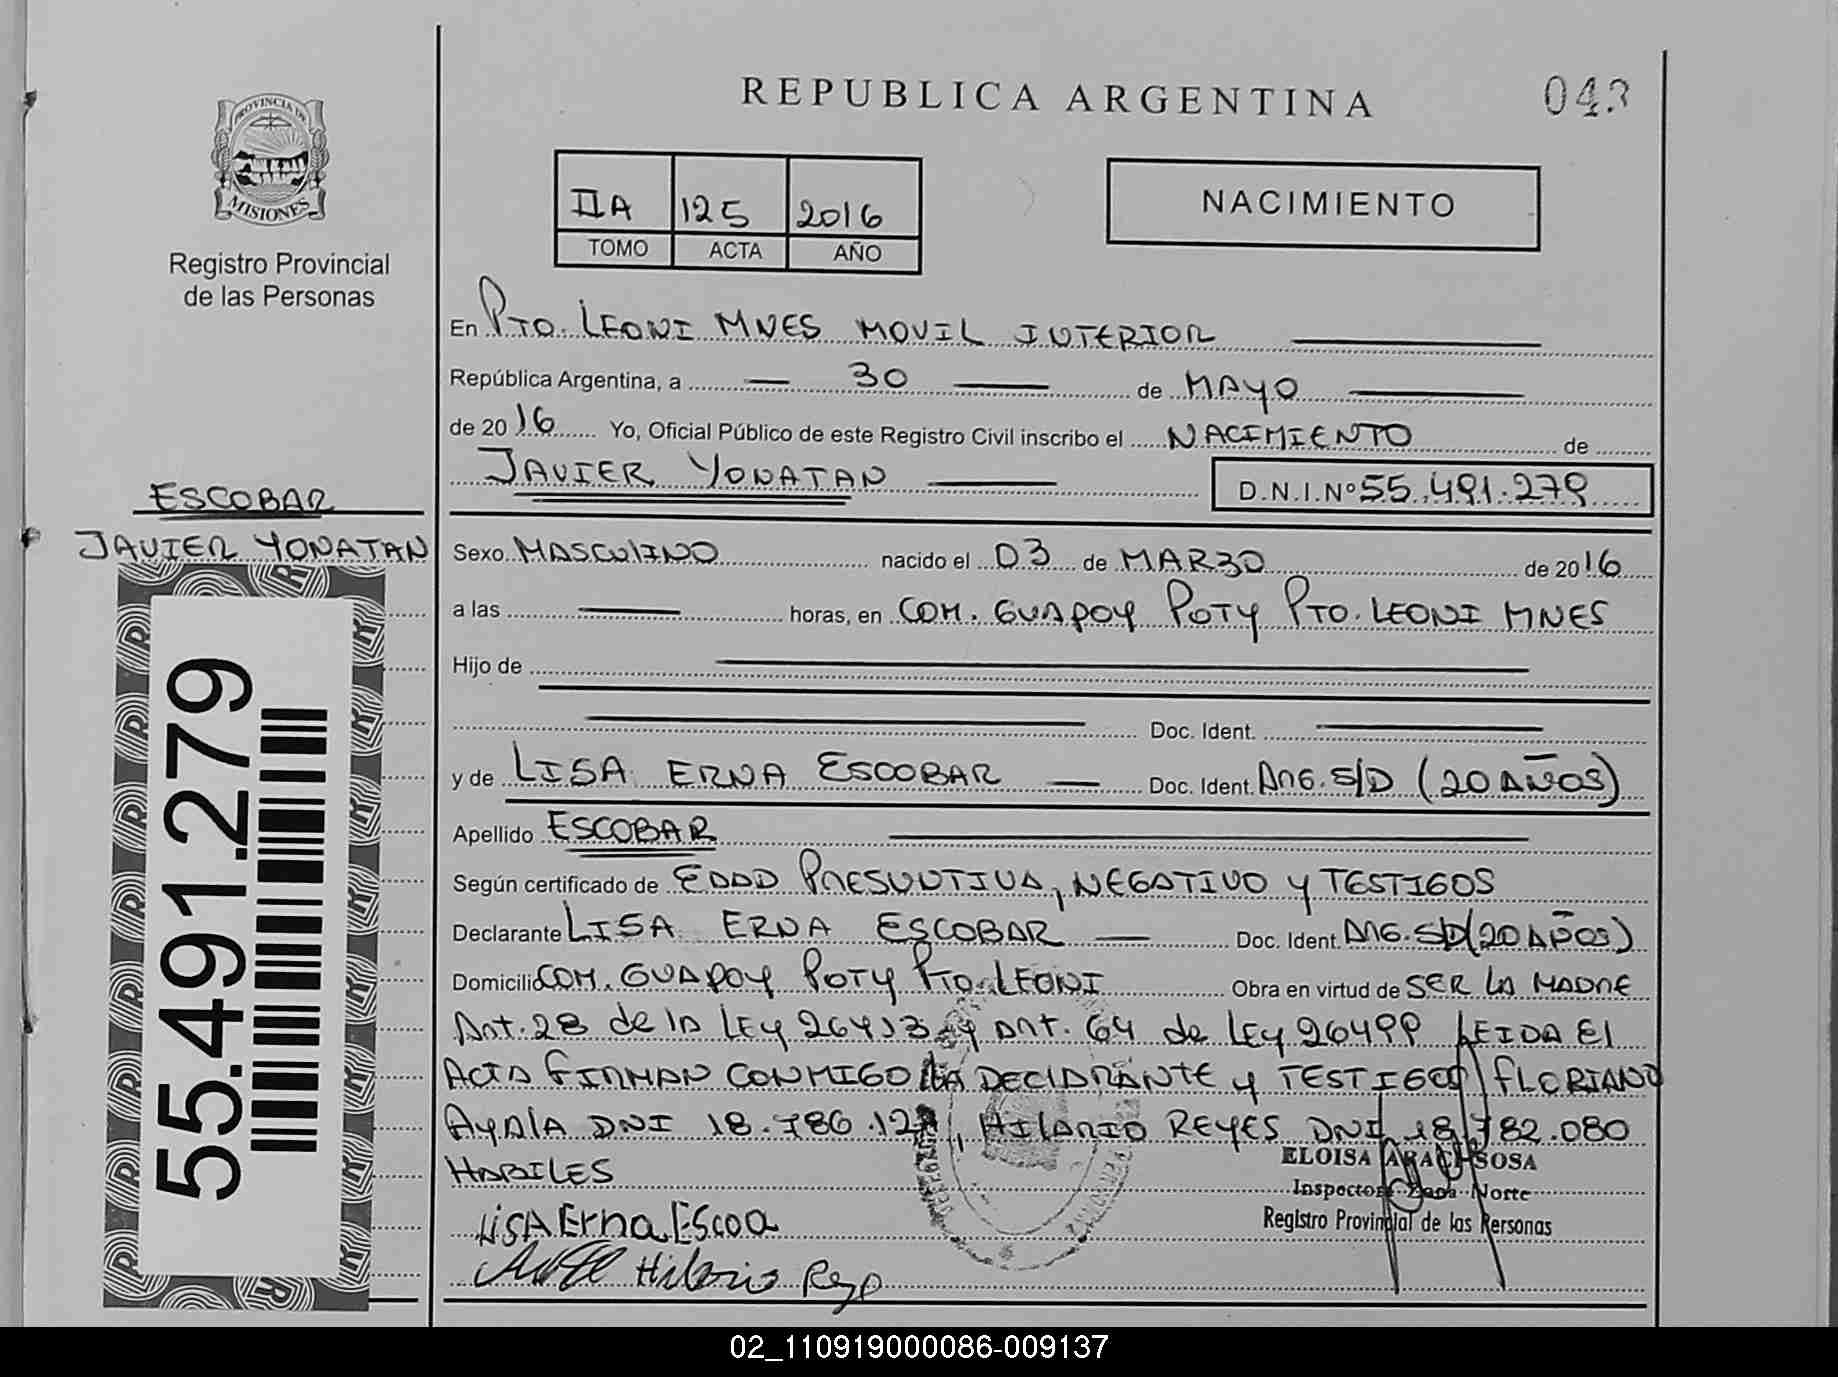 REPUBLICA ARGENTINA
043
PROVINCIA DE
MISIONES
Registro Provincial
de las Personas
IIA 125 2016
TOMO ACTA AÑO
NACIMIENTO
En PTO. LEONI MNES MOVIL INTERIOR
República Argentina, a 30 de MAYO
de 2016 Yo, Oficial Público de este Registro Civil inscribo el NACIMIENTO de
JAVIER YONATAN
D.N.I.Nº 55.491.279
ESCOBAR
JAVIER YONATAN
55.491.279
Sexo MASCULINO nacido el 03 de MARZO de 2016
a las horas, en COM. GUAPOY POTY PTO. LEONI MNES
Hijo de
Doc. Ident.
y de LISA ERNA ESCOBAR Doc. Ident. ARG. S/D (20 AÑOS)
Apellido ESCOBAR
Según certificado de EDAD PRESUNTIVA, NEGATIVO y TESTIGOS
Declarante LISA ERNA ESCOBAR Doc. Ident. ARG. S/D (20 AÑOS)
Domicilio COM. GUAPOY POTY PTO. LEONI Obra en virtud de SER LA MADRE
Art. 28 de la LEY 26413 y Art. 64 de LEY 26499 LEIDA El
ACTA FIRMAN CONMIGO LA DECLARANTE y TESTIGOS FLORIANO
AyALA DNI 18.786.12 , HILARIO REYES DNI 18.782.080
HABILES
ELOISA SOSA
Inspectora Zona Norte
Registro Provincial de las Personas
LiSA Erna Escoa
Hilario Reyes
02_110919000086-009137